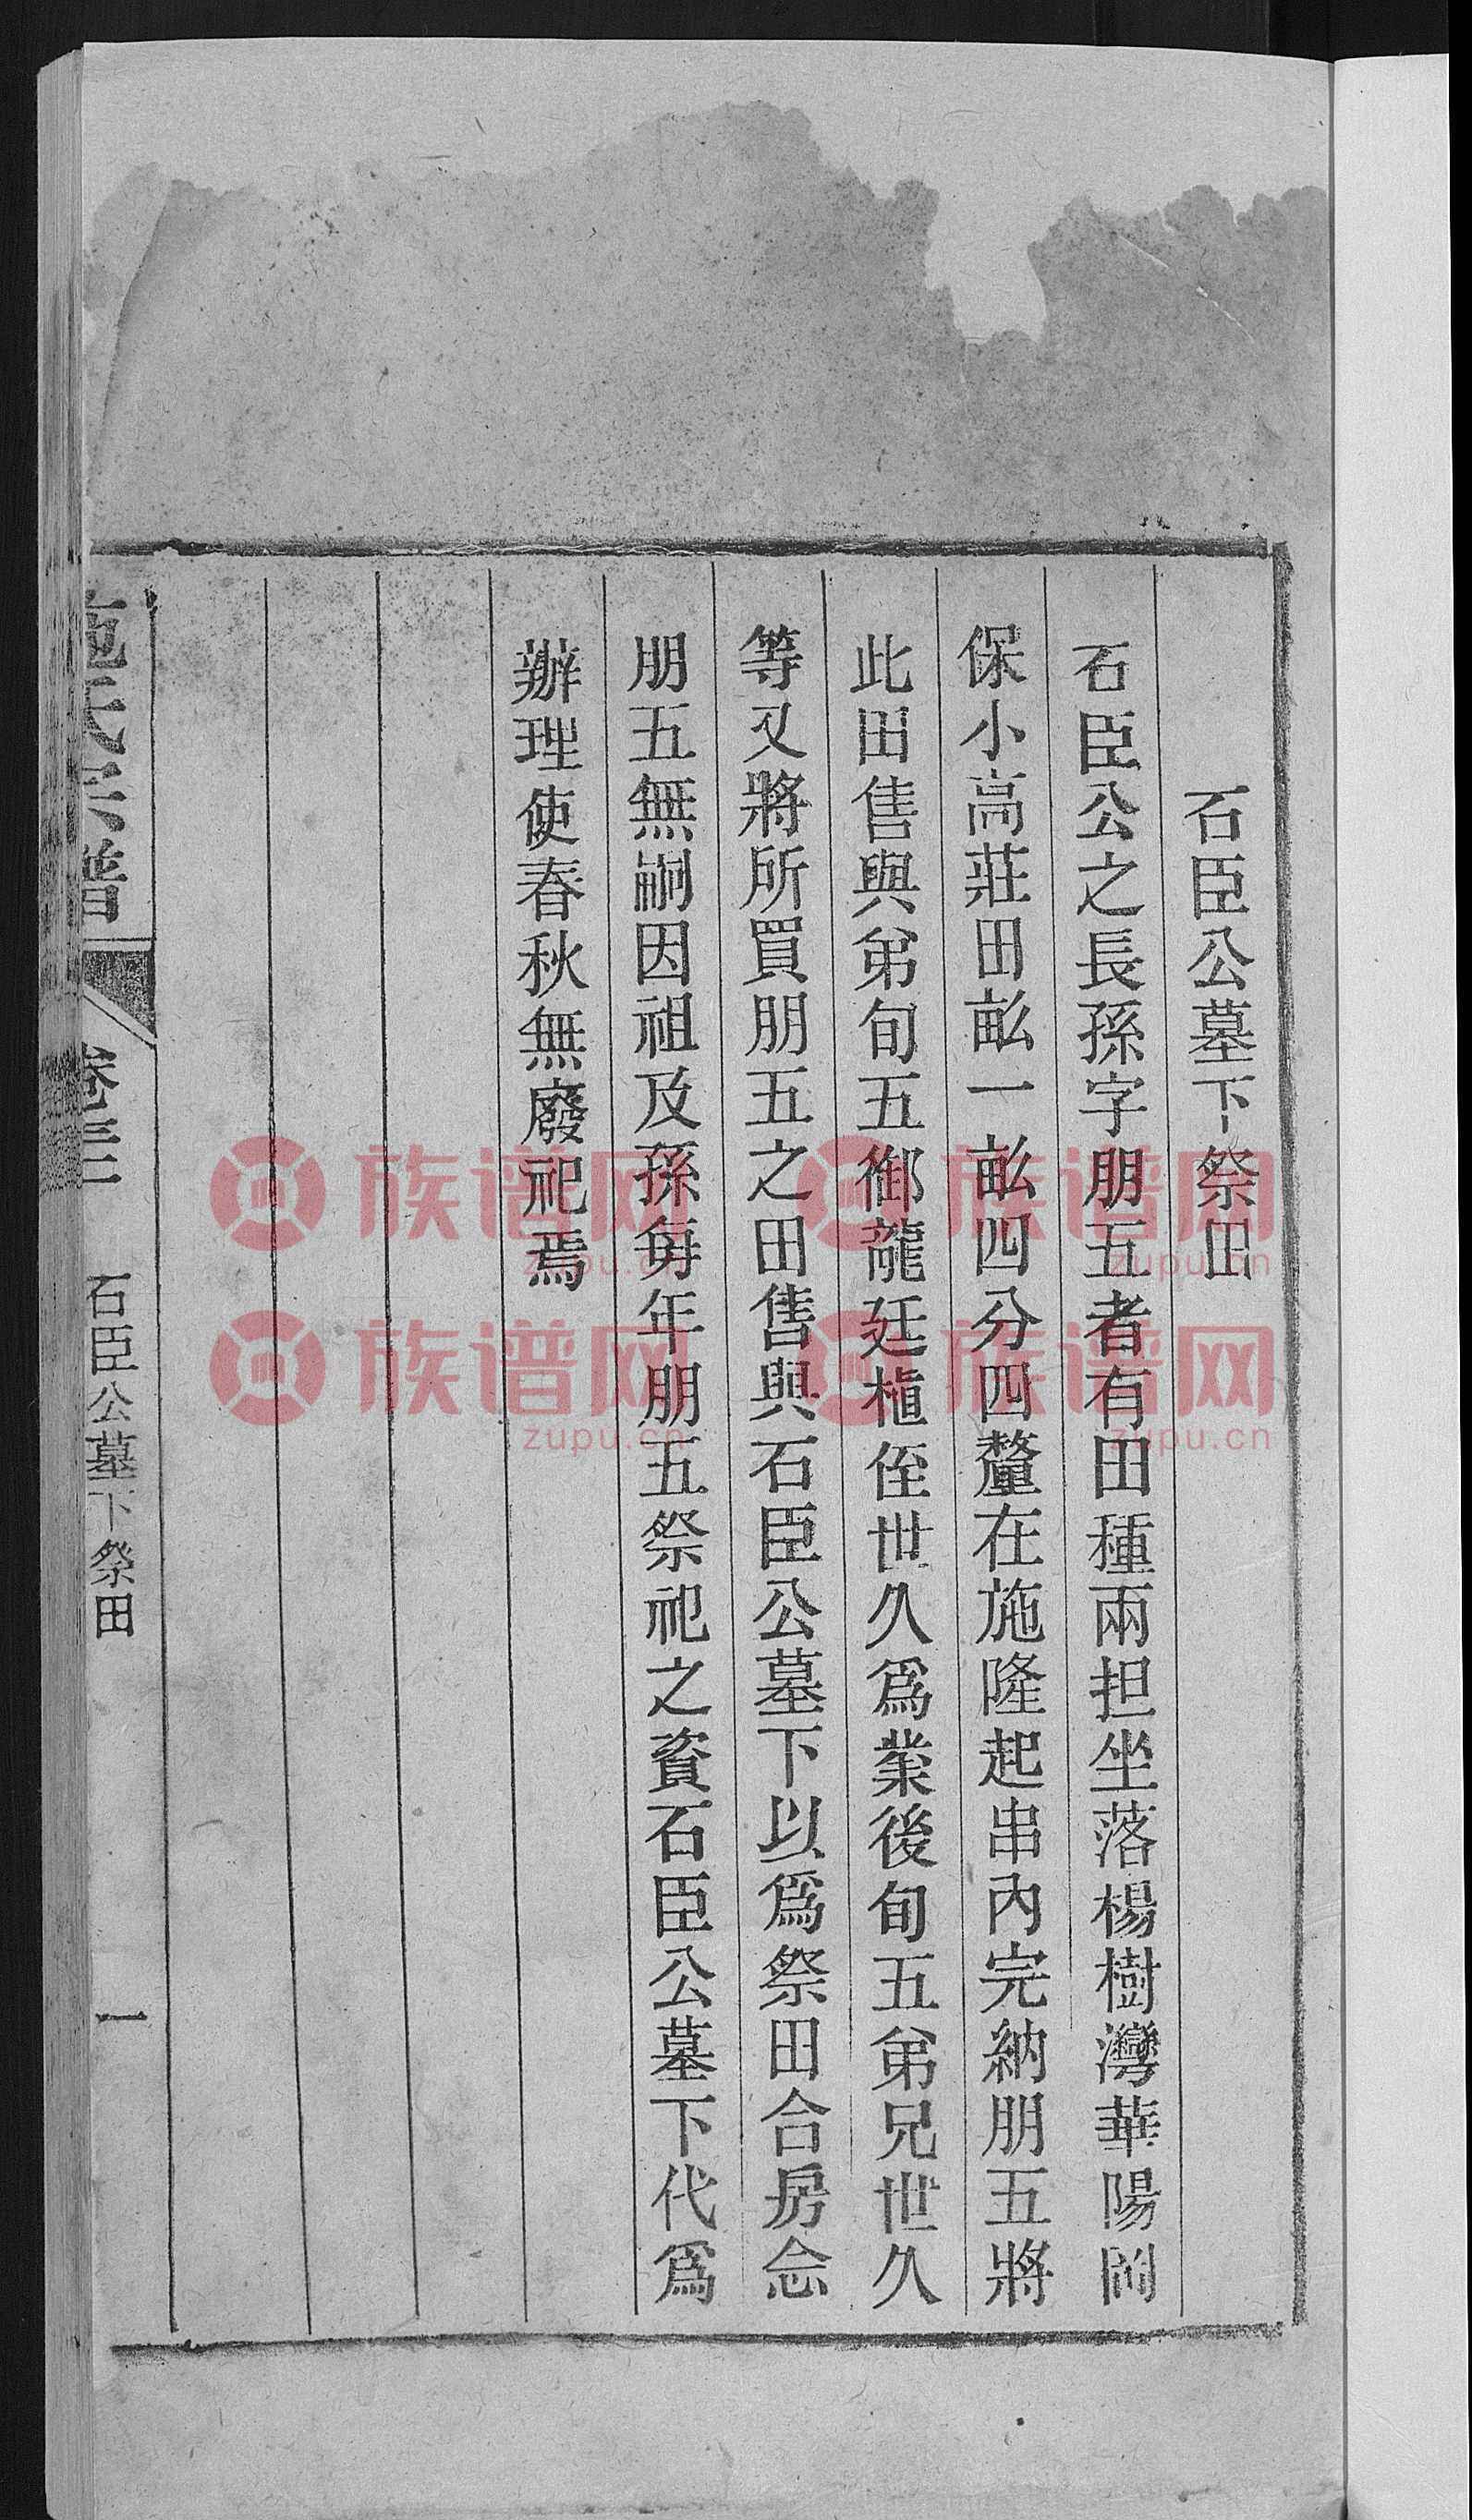 石臣公墓下祭田
石臣公之長孫字朋五者有田種兩担坐落楊樹灣華陽岡
保小高莊田畝一畝四分四釐在施隆起串內完納朋五將
此田售與弟旬五御龍廷楨侄世久爲業後旬五弟兄世久
等又將所買朋五之田售與石臣公墓下以爲祭田合房念
朋五無嗣因祖及孫每年朋五祭祀之資石臣公墓下代爲
辦理使春秋無廢祀焉
施氏宗譜
卷三
石臣公墓下祭田
一
族谱网
zupu.cn
族谱网
zupu.cn
族谱网
zupu.cn
族谱网
zupu.cn